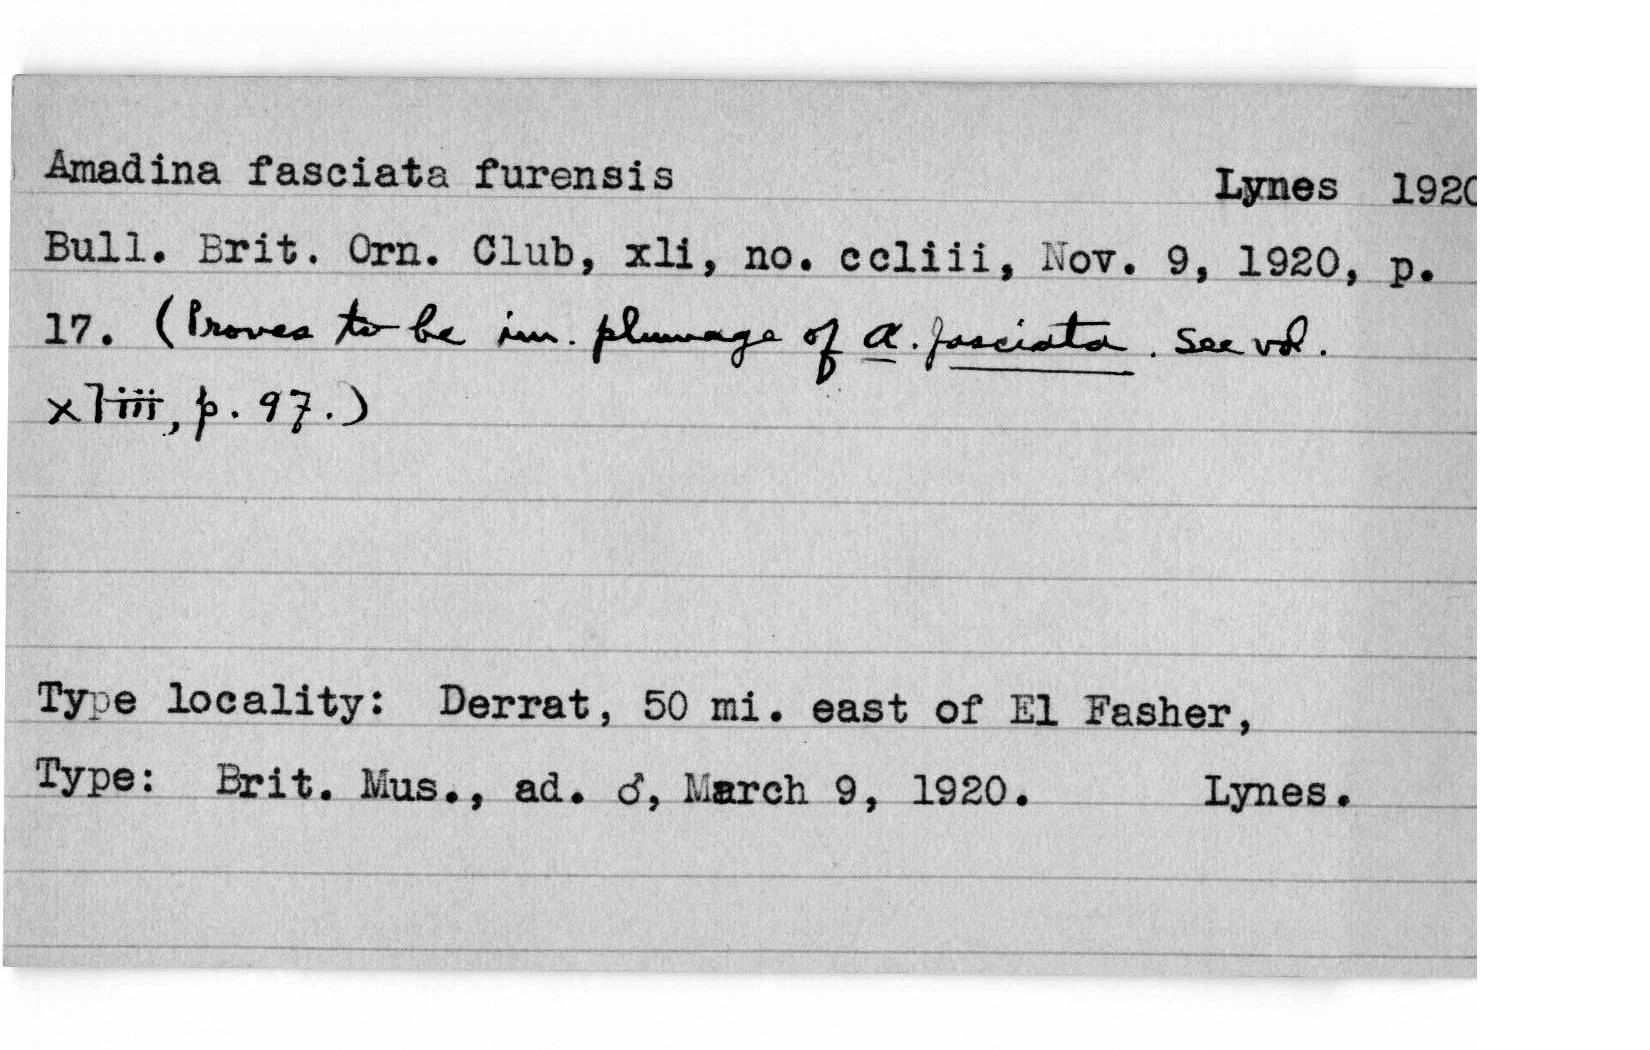 Amadina fasciata furensis Lynes 1920
Bull. Brit. Orn. Club, xli, no. ccliii, Nov. 9, 1920, p.
17. (Proves to be im. plumage of a. fasciata. See vol.
xliii, p. 97.)
Type locality: Derrat, 50 mi. east of El Fasher,
Type: Brit. Mus., ad. ♂, March 9, 1920. Lynes.